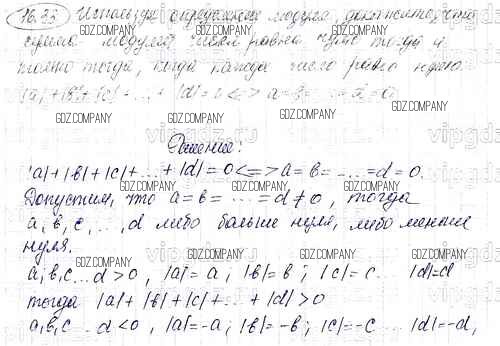 16.33 Используя определение модуля, докажите, что
сумма модулей чисел равна нулю тогда и
только тогда, когда каждое число равно нулю.
GDZ.COMPANY GDZ.COMPANY GDZ.COMPANY
|a|+|b|+|c|+...+|d|=0<=>a=b=...=d=0.
GDZ.COMPANY GDZ.COMPANY GDZ.COMPANY
vipgdz
Решение:
|a|+|b|+|c|+...+|d|=0<=>a=b=....=d=0.
GDZ.COMPANY GDZ.COMPANY GDZ.COMPANY
Допустим, что a=b=...=d≠0, тогда
a, b, c, ..., d либо больше нуля, либо меньше
нуля.
GDZ.COMPANY GDZ.COMPANY GDZ.COMPANY
a, b, c...d>0, |a|=a; |b|=b; |c|=c... |d|=d
тогда |a|+|b|+|c|+...+|d|>0
GDZ.COMPANY GDZ.COMPANY GDZ.COMPANY
a, b, c...d<0, |a|=-a; |b|=-b; |c|=-c...|d|=-d,